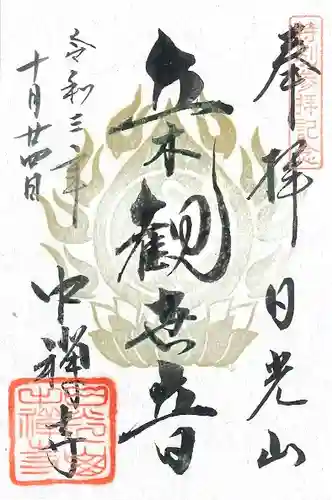 特別参拝記念
奉拝 日光山
立木観世音
中禅寺
令和三年
十月廿四日